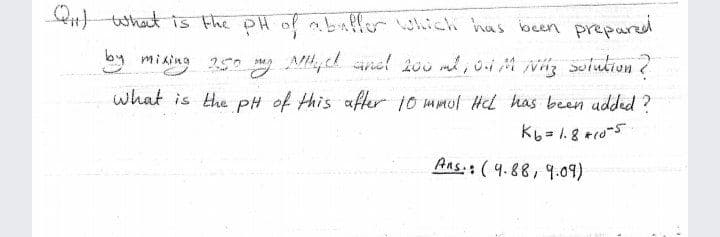 Q11) what is the pH of a buffer which has been prepared
by mixing 250 mg NH4cl and 200 ml, 0.1 M NH3 solution ?
what is the pH of this after 10 mmol Hcl has been added ?
Kb = 1.8 *10-5
Ans.: ( 9.88, 9.09)